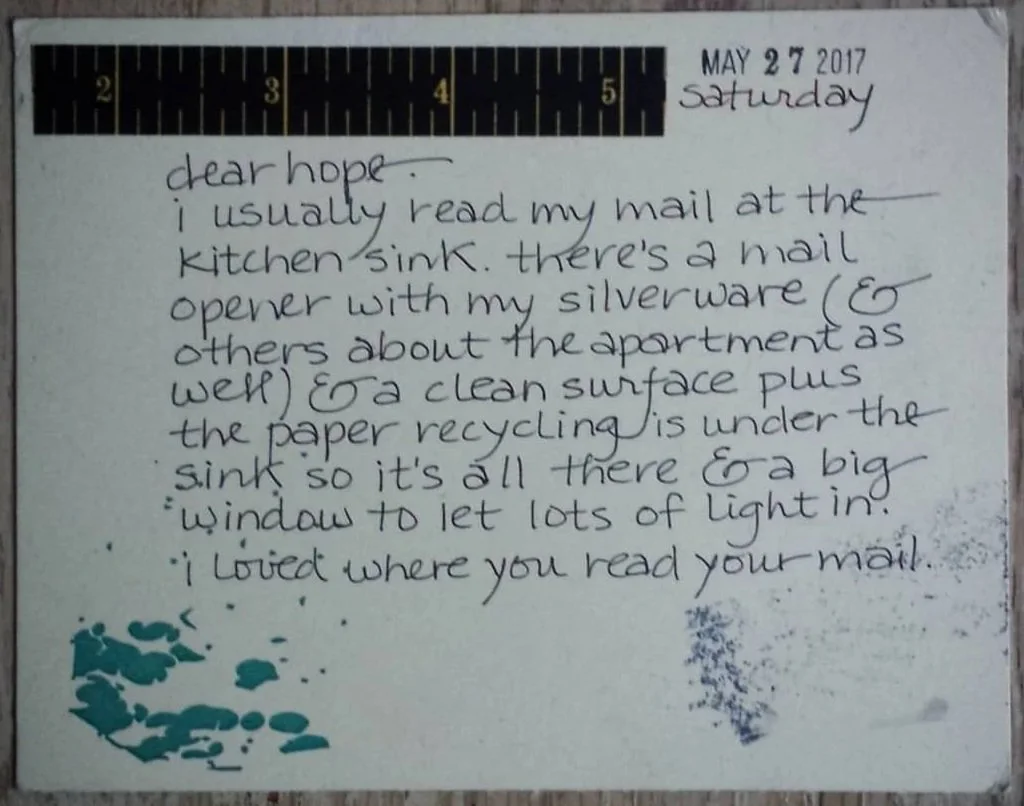 2 3 4 5
MAY 27 2017
saturday
dear hope.
i usually read my mail at the
kitchen sink. there's a mail
opener with my silverware (&
others about the apartment as
well) & a clean surface plus
the paper recycling is under the
sink so it's all there & a big
window to let lots of light in.
i loved where you read your mail.